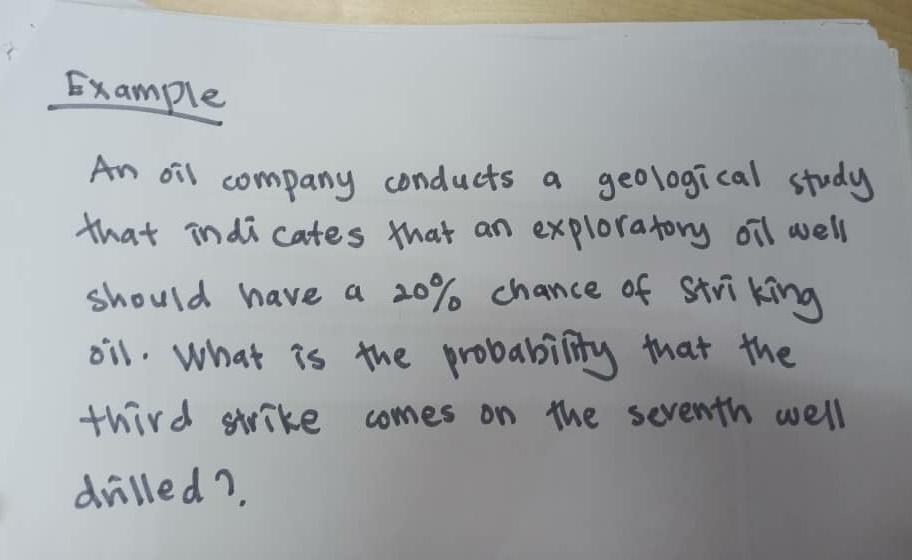 Example
An oil company conducts a geological study
that indicates that an exploratory oil well
should have a 20% chance of striking
oil. What is the probability that the
third strike comes on the seventh well
drilled?.